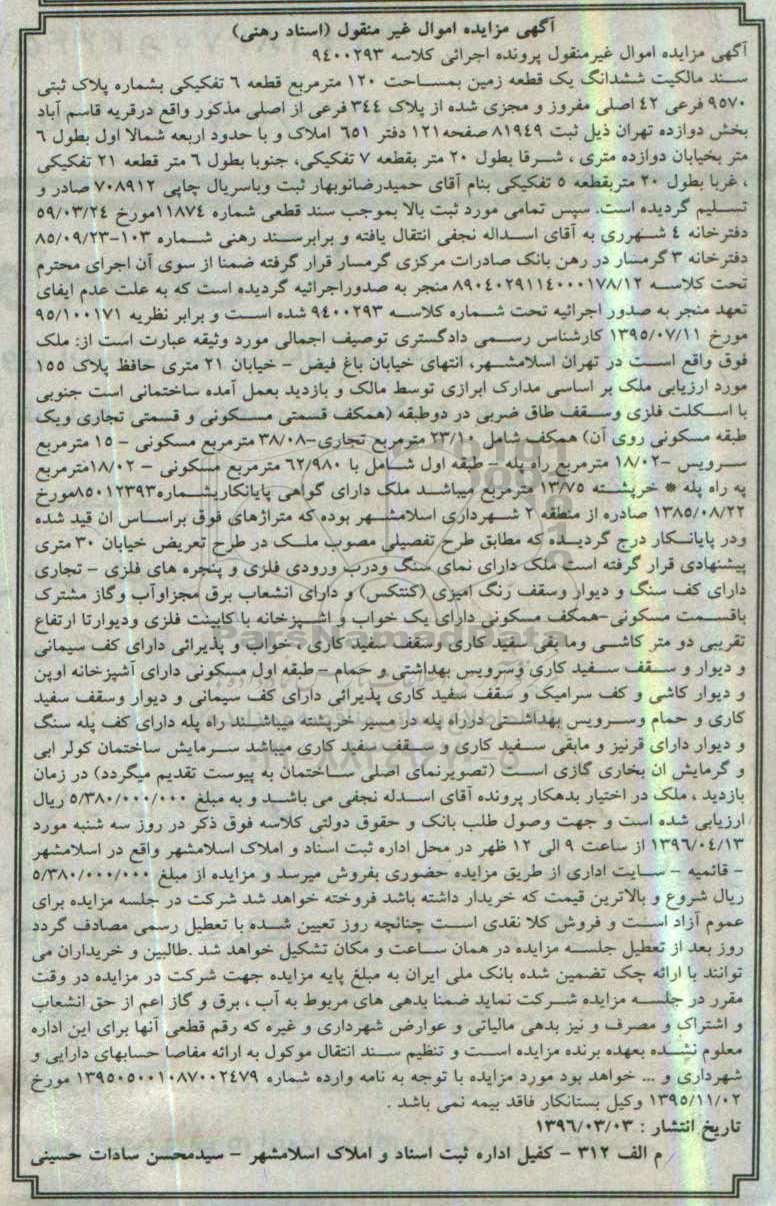 آگهی مزایده اموال غیر منقول (اسناد رهنی)
آگهی مزایده اموال غیرمنقول پرونده اجرائی کلاسه ۹٤۰۰۲۹۳
سند مالکیت ششدانگ یک قطعه زمین بمساحت ۱۲۰ مترمربع قطعه ٦ تفکیکی بشماره پلاک ثبتی
۹٥۷۰ فرعی ٤۲ اصلی مفروز و مجزی شده از پلاک ۳٤٤ فرعی از اصلی مذکور واقع درقریه قاسم آباد
بخش دوازده تهران ذیل ثبت ۸۱۹٤۹ صفحه۱۲۱ دفتر ٦٥۱ املاک و با حدود اربعه شمالا اول بطول ٦
متر بخیابان دوازده متری ، شرقا بطول ۲۰ متر بقطعه ۷ تفکیکی، جنوبا بطول ٦ متر قطعه ۲۱ تفکیکی
، غربا بطول ۲۰ متربقطعه ٥ تفکیکی بنام آقای حمیدرضانوبهار ثبت وباسریال چاپی ۷۰۸۹۱۲ صادر و
تسلیم گردیده است. سپس تمامی مورد ثبت بالا بموجب سند قطعی شماره ۱۱۸۷٤مورخ ٥۹/۰۳/۲٤
دفترخانه ٤ شهرری به آقای اسداله نجفی انتقال یافته و برابرسند رهنی شماره ۱۰۳-۸٥/۰۹/۲۳
دفترخانه ۳ گرمسار در رهن بانک صادرات مرکزی گرمسار قرار گرفته ضمنا از سوی آن اجرای محترم
تحت کلاسه ۸۹۰٤۰۲۹۱۱٤۰۰۰۱۷۸/۱۲ منجر به صدوراجرائیه گردیده است که به علت عدم ایفای
تعهد منجر به صدور اجرائیه تحت شماره کلاسه ۹٤۰۰۲۹۳ شده است و برابر نظریه ۹٥/۱۰۰۱۷۱
مورخ ۱۳۹٥/۰۷/۱۱ کارشناس رسمی دادگستری توصیف اجمالی مورد وثیقه عبارت است از: ملک
فوق واقع است در تهران اسلامشهر، انتهای خیابان باغ فیض - خیابان ۲۱ متری حافظ پلاک ۱٥٥
مورد ارزیابی ملک بر اساسی مدارک ابرازی توسط مالک و بازدید بعمل آمده ساختمانی است جنوبی
با اسکلت فلزی وسقف طاق ضربی در دوطبقه (همکف قسمتی مسکونی و قسمتی تجاری ویک
طبقه مسکونی روی آن) همکف شامل ۲۳/۱۰ مترمربع تجاری-۳۸/۰۸ مترمربع مسکونی - ۱٥ مترمربع
سرویس -۱۸/۰۲ مترمربع راه پله - طبقه اول شامل با ٦۲/۹۸۰ مترمربع مسکونی - ۱۸/۰۲مترمربع
په راه پله * خرپشته ۱۳/۷٥ مترمربع میباشد ملک دارای گواهی پایانکاربشماره۸٥۰۱۲۳۹۳مورخ
۱۳۸٥/۰۸/۲۲ صادره از منطقه ۲ شهرداری اسلامشهر بوده که متراژهای فوق براساس ان قید شده
ودر پایانکار درج گردیده که مطابق طرح تفصیلی مصوب ملک در طرح تعریض خیابان ۳۰ متری
پیشنهادی قرار گرفته است ملک دارای نمای سنگ ودرب ورودی فلزی و پنجره های فلزی - تجاری
دارای کف سنگ و دیوار وسقف رنگ امیزی (کنتکس) و دارای انشعاب برق مجزاوآب وگاز مشترک
باقسمت مسکونی-همکف مسکونی دارای یک خواب و اشپزخانه با کابینت فلزی ودیوارتا ارتفاع
تقریبی دو متر کاشی وما بقی سفید کاری وسقف سفید کاری ، خواب و پذیرائی دارای کف سیمانی
و دیوار و سقف سفید کاری وسرویس بهداشتی و حمام - طبقه اول مسکونی دارای آشپزخانه اوپن
و دیوار کاشی و کف سرامیک و سقف سفید کاری پذیرائی دارای کف سیمانی و دیوار وسقف سفید
کاری و حمام وسرویس بهداشتی درراه پله در مسیر خرپشته میباشند راه پله دارای کف پله سنگ
و دیوار دارای قرنیز و مابقی سفید کاری و سقف سفید کاری میباشد سرمایش ساختمان کولر ابی
و گرمایش ان بخاری گازی است (تصویرنمای اصلی ساختمان به پیوست تقدیم میگردد) در زمان
بازدید ، ملک در اختیار بدهکار پرونده آقای اسدله نجفی می باشد و به مبلغ ٥/۳۸۰/۰۰۰/۰۰۰ ریال
ارزیابی شده است و جهت وصول طلب بانک و حقوق دولتی کلاسه فوق ذکر در روز سه شنبه مورد
۱۳۹٦/۰٤/۱۳ از ساعت ۹ الی ۱۲ ظهر در محل اداره ثبت اسناد و املاک اسلامشهر واقع در اسلامشهر
- قائمیه - سایت اداری از طریق مزایده حضوری بفروش میرسد و مزایده از مبلغ ٥/۳۸۰/۰۰۰/۰۰۰
ریال شروع و بالاترین قیمت که خریدار داشته باشد فروخته خواهد شد شرکت در جلسه مزایده برای
عموم آزاد است و فروش کلا نقدی است چنانچه روز تعیین شده با تعطیل رسمی مصادف گردد
روز بعد از تعطیل جلسه مزایده در همان ساعت و مکان تشکیل خواهد شد .طالبین و خریداران می
توانند با ارائه چک تضمین شده بانک ملی ایران به مبلغ پایه مزایده جهت شرکت در مزایده در وقت
مقرر در جلسه مزایده شرکت نماید ضمنا بدهی های مربوط به آب ، برق و گاز اعم از حق انشعاب
و اشتراک و مصرف و نیز بدهی مالیاتی و عوارض شهرداری و غیره که رقم قطعی آنها برای این اداره
معلوم نشده بعهده برنده مزایده است و تنظیم سند انتقال موکول به ارائه مفاصا حسابهای دارایی و
شهرداری و ... خواهد بود مورد مزایده با توجه به نامه وارده شماره ۱۳۹٥۰٥۰۰۱۰۸۷۰۰۲٤۷۹ مورخ
۱۳۹٥/۱۱/۰۲ وکیل بستانکار فاقد بیمه نمی باشد .
تاریخ انتشار : ۱۳۹٦/۰۳/۰۳
م الف ۳۱۲ - کفیل اداره ثبت اسناد و املاک اسلامشهر - سیدمحسن سادات حسینی